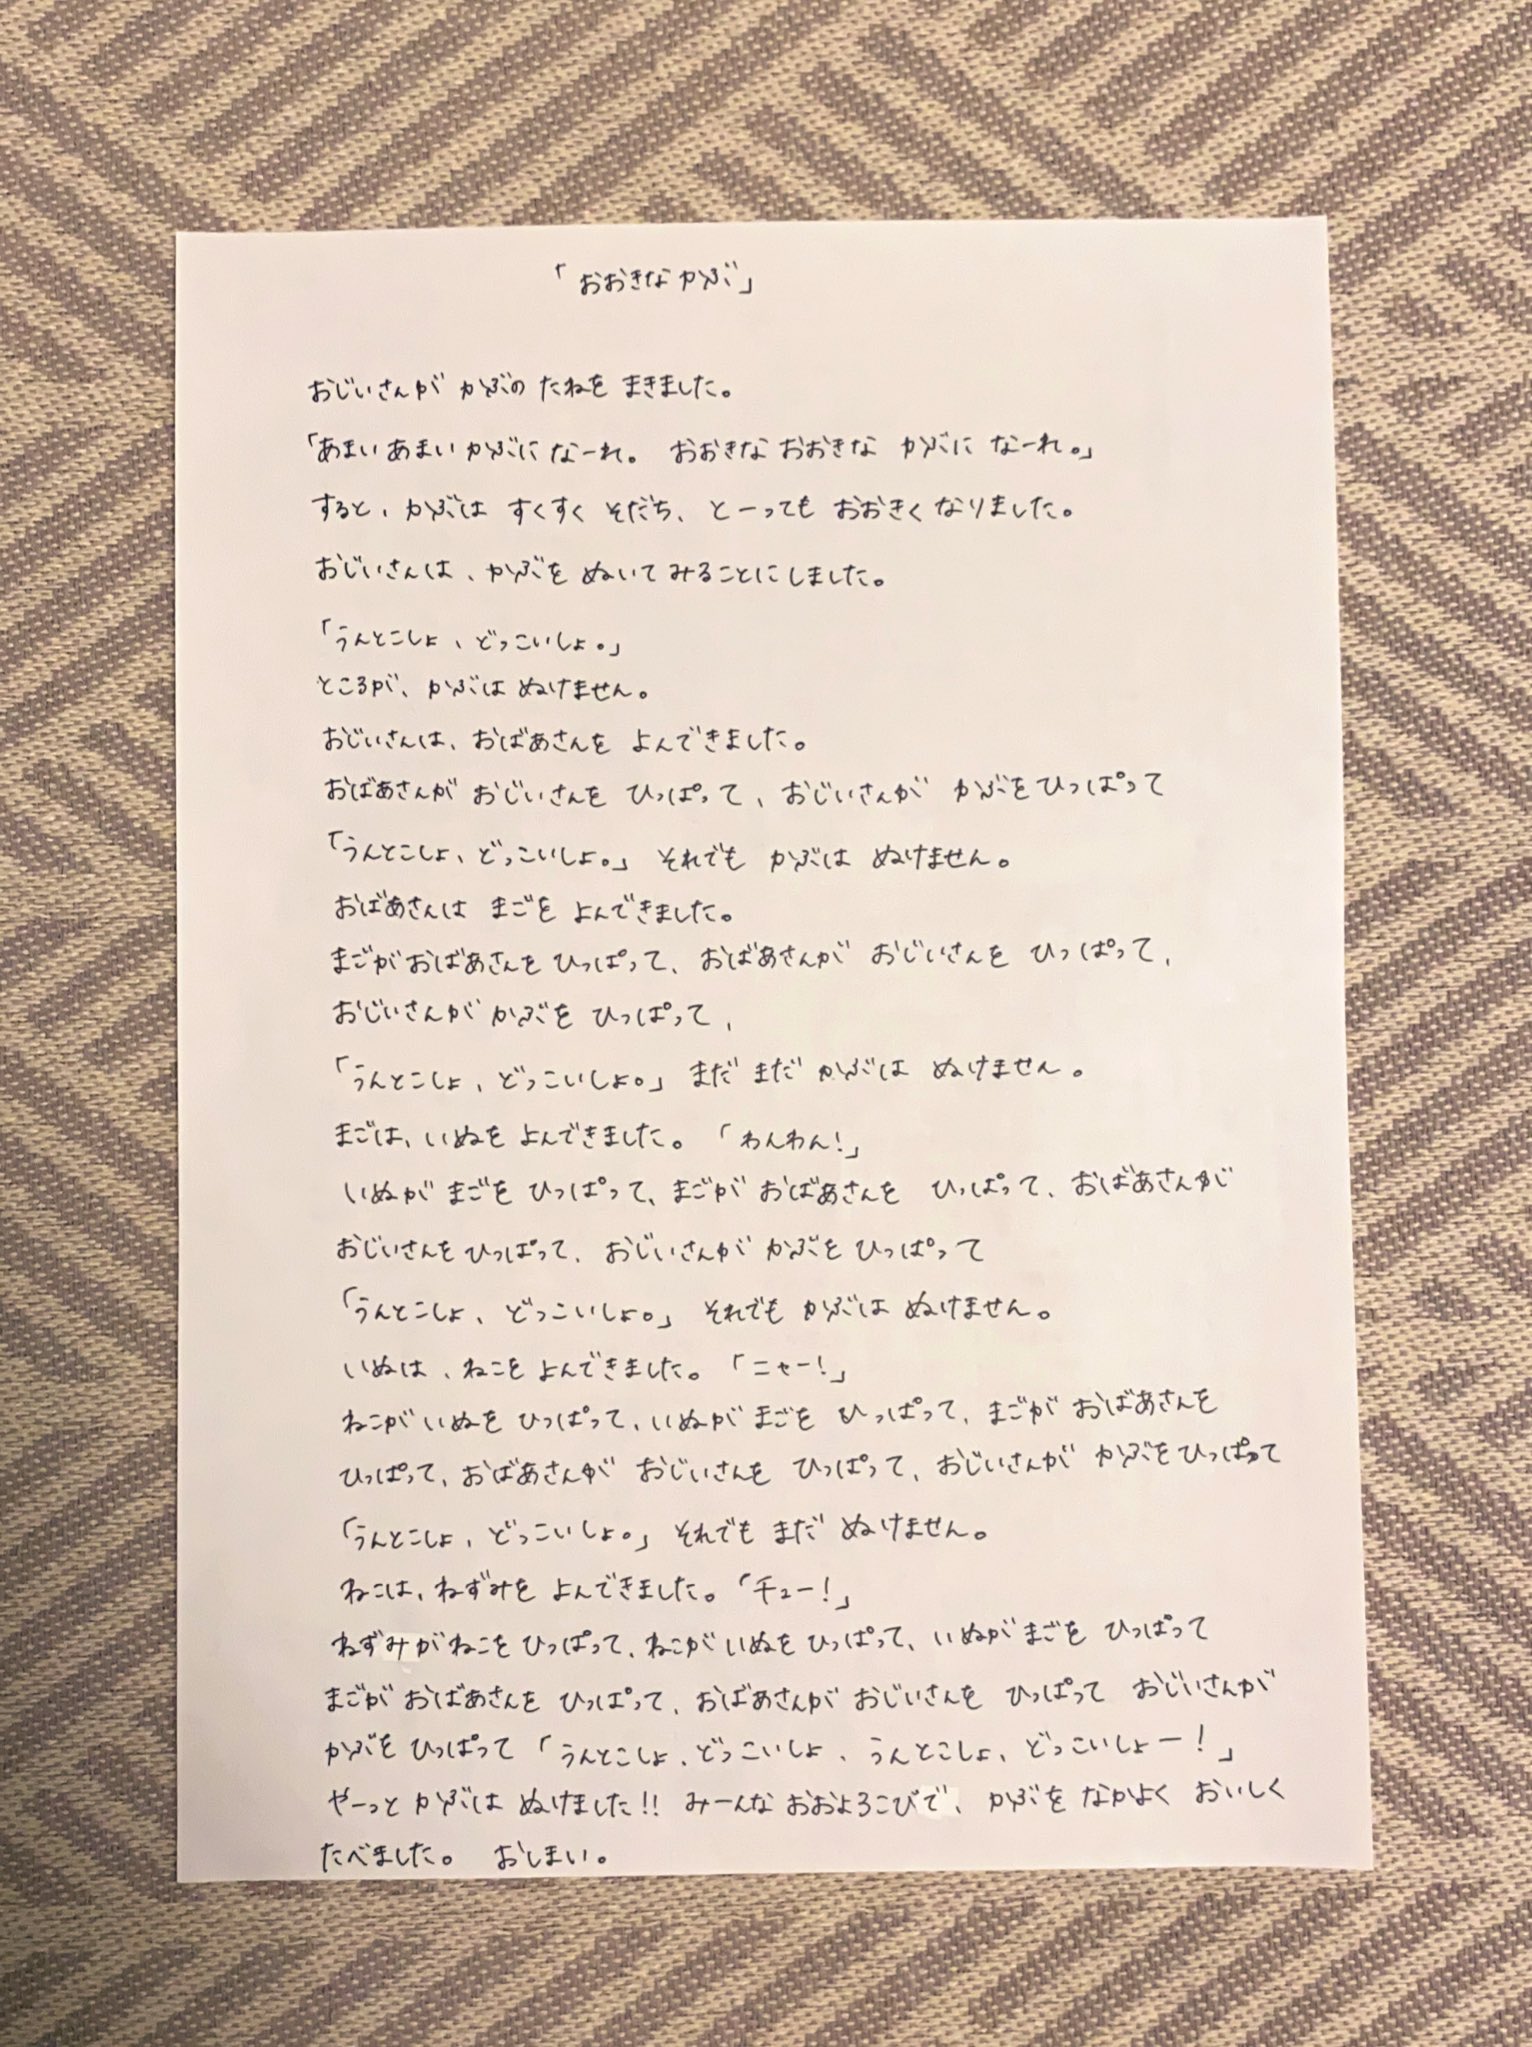 「おおきな かぶ」
おじいさんが かぶの たねを まきました。
「あまい あまい かぶに なーれ。 おおきな おおきな かぶに なーれ。」
すると、かぶは すくすく そだち、とーっても おおきく なりました。
おじいさんは、かぶを ぬいて みることに しました。
「うんとこしょ、どっこいしょ。」
ところが、かぶは ぬけません。
おじいさんは、おばあさんを よんできました。
おばあさんが おじいさんを ひっぱって、おじいさんが かぶを ひっぱって
「うんとこしょ、どっこいしょ。」 それでも かぶは ぬけません。
おばあさんは まごを よんできました。
まごが おばあさんを ひっぱって、おばあさんが おじいさんを ひっぱって、
おじいさんが かぶを ひっぱって、
「うんとこしょ、どっこいしょ。」 まだ まだ かぶは ぬけません。
まごは、いぬを よんできました。 「わんわん!」
いぬが まごを ひっぱって、まごが おばあさんを ひっぱって、おばあさんが
おじいさんを ひっぱって、おじいさんが かぶを ひっぱって
「うんとこしょ、どっこいしょ。」 それでも かぶは ぬけません。
いぬは、ねこを よんできました。 「ニャー!」
ねこが いぬを ひっぱって、いぬが まごを ひっぱって、まごが おばあさんを
ひっぱって、おばあさんが おじいさんを ひっぱって、おじいさんが かぶを ひっぱって
「うんとこしょ、どっこいしょ。」 それでも まだ ぬけません。
ねこは、ねずみを よんできました。「チュー!」
ねずみが ねこを ひっぱって、ねこが いぬを ひっぱって、いぬが まごを ひっぱって
まごが おばあさんを ひっぱって、おばあさんが おじいさんを ひっぱって おじいさんが
かぶを ひっぱって 「うんとこしょ、どっこいしょ、うんとこしょ、どっこいしょー!」
やーっと かぶは ぬけました!! みーんな おおよろこびで、かぶを なかよく おいしく
たべました。 おしまい。